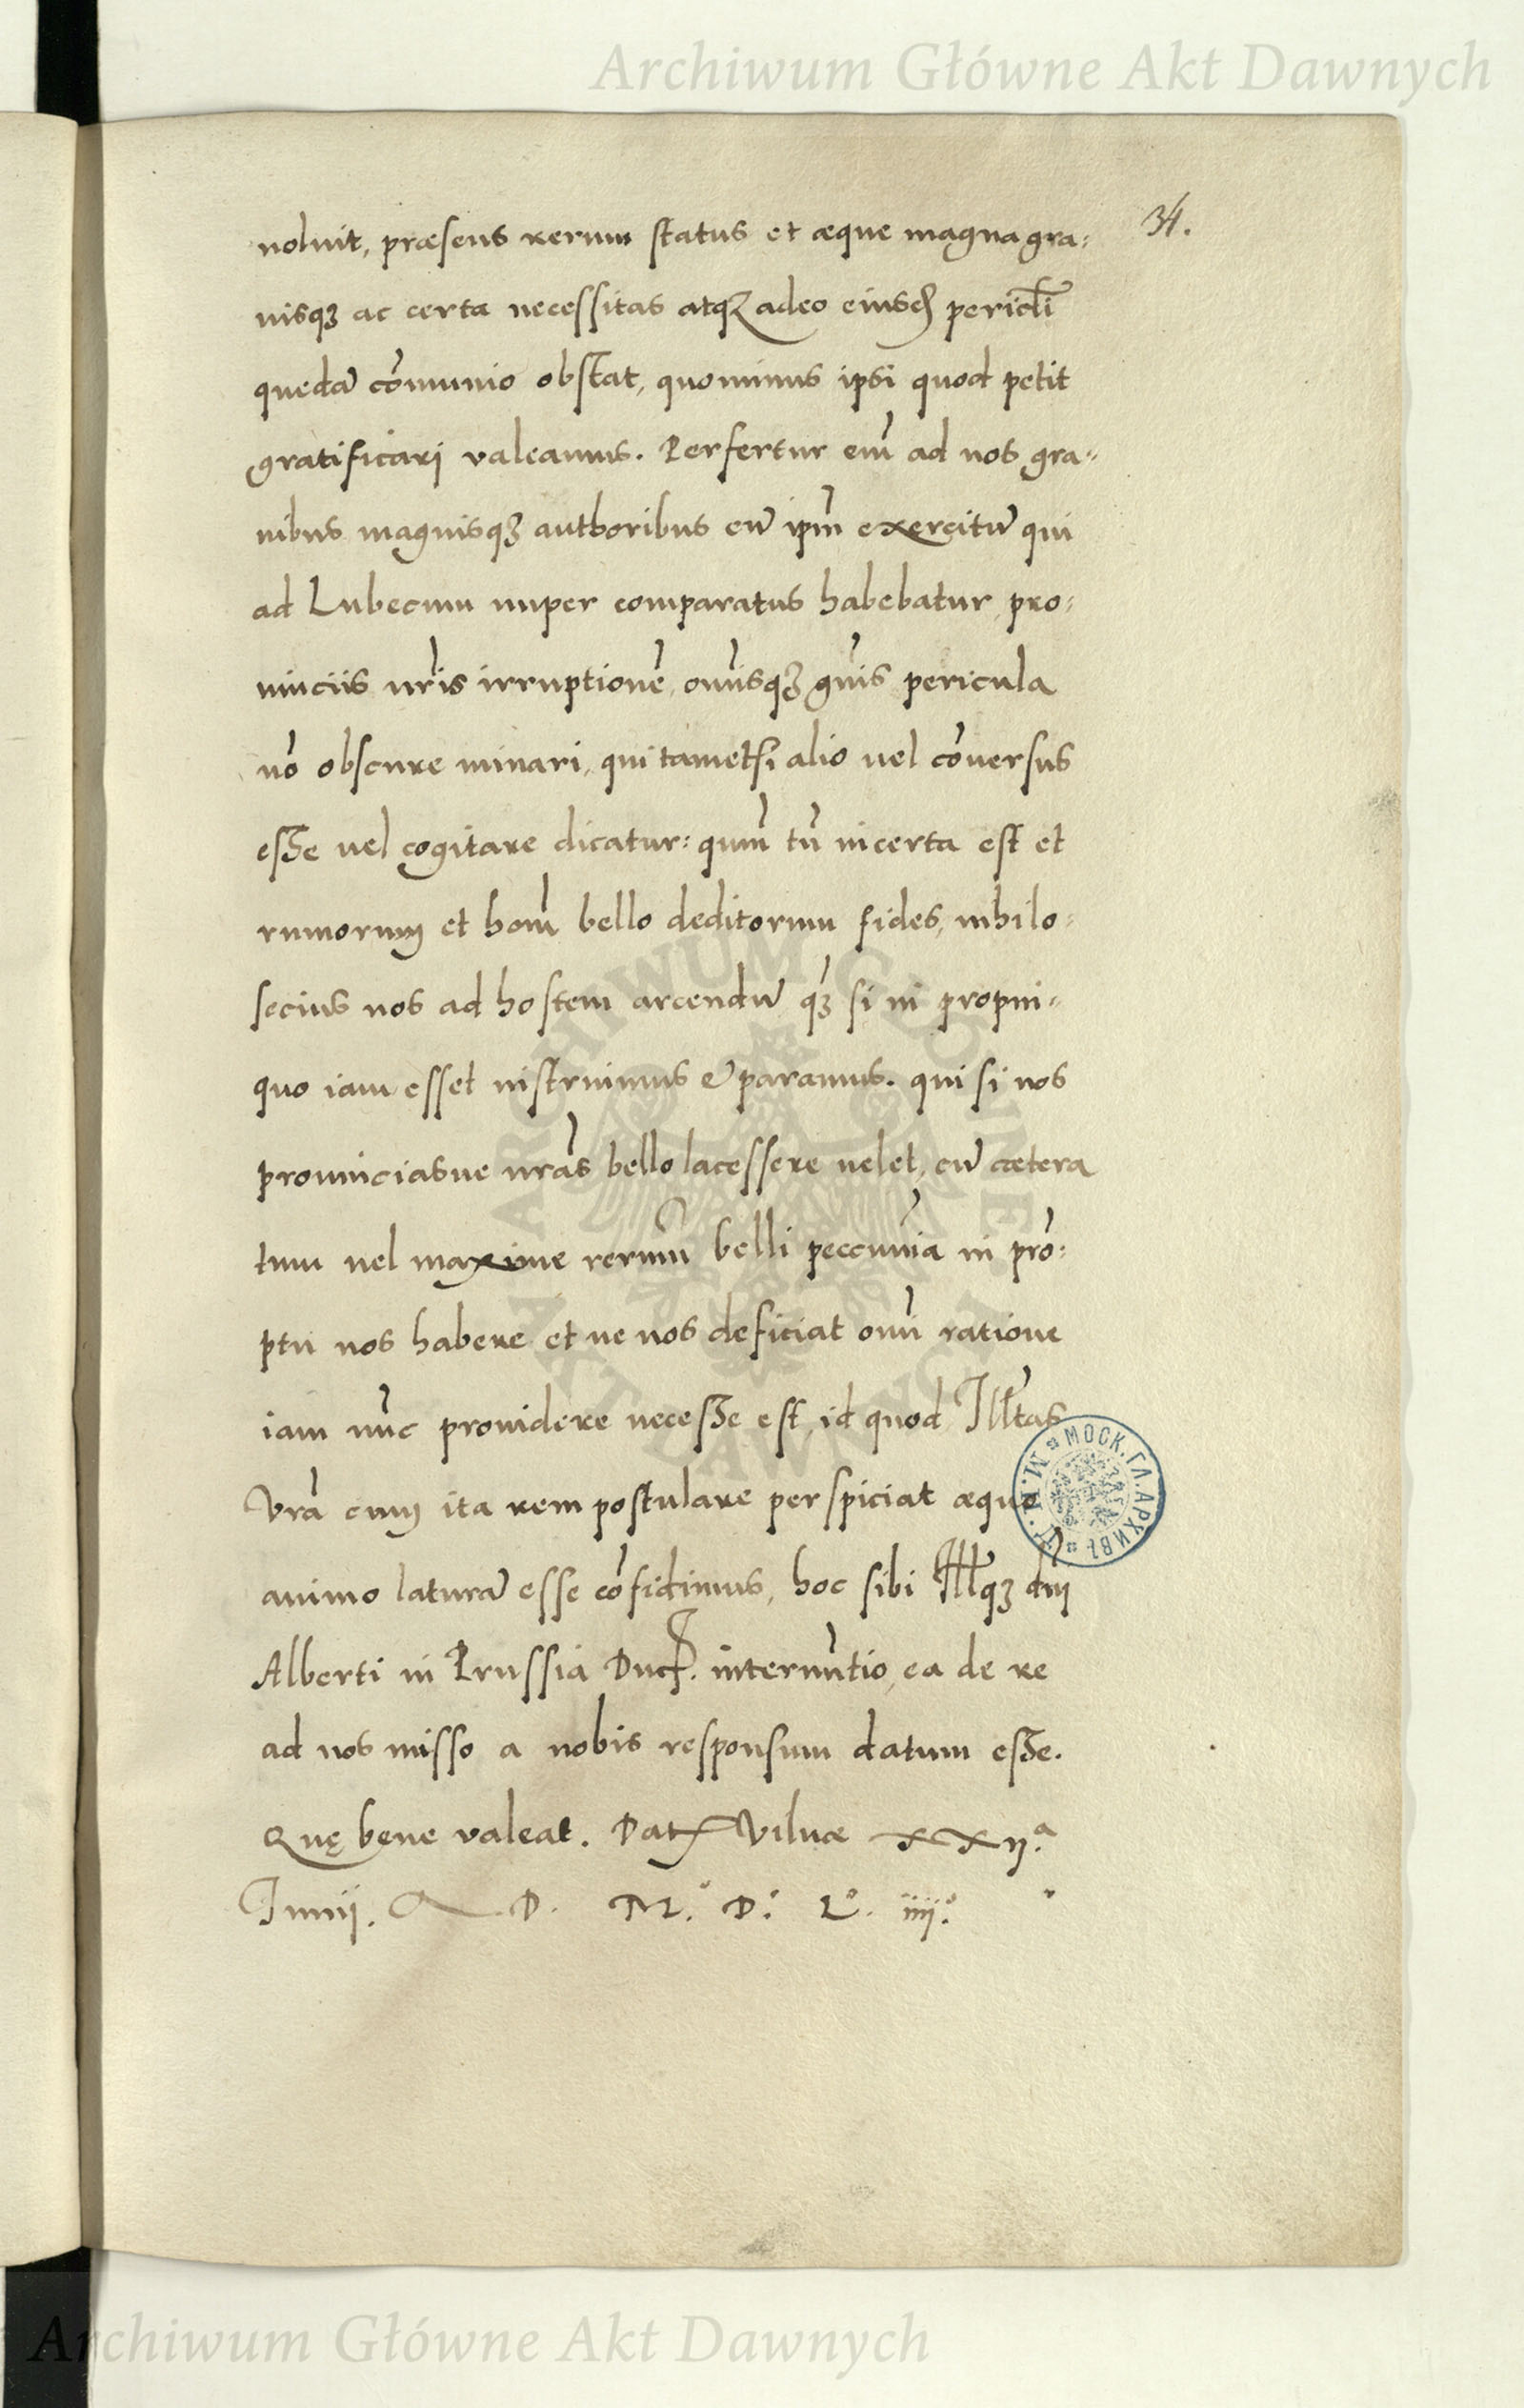 Archiwum Główne Akt Dawnych
34.
noluit, præsens rerum status et æque magna gra:
uisqꝫ ac certa necessitas atqꝫ adeo eiusd̃ pericl̃i
quedã cõmunio obstat, quominus ipsi quod petit
gratificari valeamus. Perfertur em̃ ad nos gra:
uibus magnisqꝫ authoribus eũ ip̃m exercitũ qui
ad Lubecum nuper comparatus habebatur, pro:
uinciis nr̃is irruptionẽ, om̃isqꝫ gñis pericula
nõ obscure minari, qui tametsi alio uel cõuersus
esse uel cogitare dicatur: qum̃ tñ incerta est et
rumorum et hom̃ bello deditorum fides, nihilo:
secius nos ad hostem arcendũ q̃ꝫ si in propin:
quo iam esset instruimus & paramus. qui si nos
prouinciasue nrãs bello lacessere uelet, cũ cætera
tum uel maxime rerum̃ belli peccuniã in prõ:
ptu nos habere et ne nos deficiat om̃i ratione
iam nũc prouidere necesse est, id quod Ill̃tas
Vrã cum ita rem postulare perspiciat æquo
animo laturã esse cõfidimus, hoc sibi Ill̃qꝫ dñi
Alberti in Prussia Duc̃. internũtio, ea de re
ad nos misso a nobis responsum datum esse.
Quę bene valeat. Dat Vilnæ XXII.ª
Junij. A D. M.º D.º L.º iiij.º
МОСК. ГЛ. АРХИВЪ * М. И. Д. *
ARCHIWUM GŁÓWNE AKT DAWNYCH
Archiwum Główne Akt Dawnych